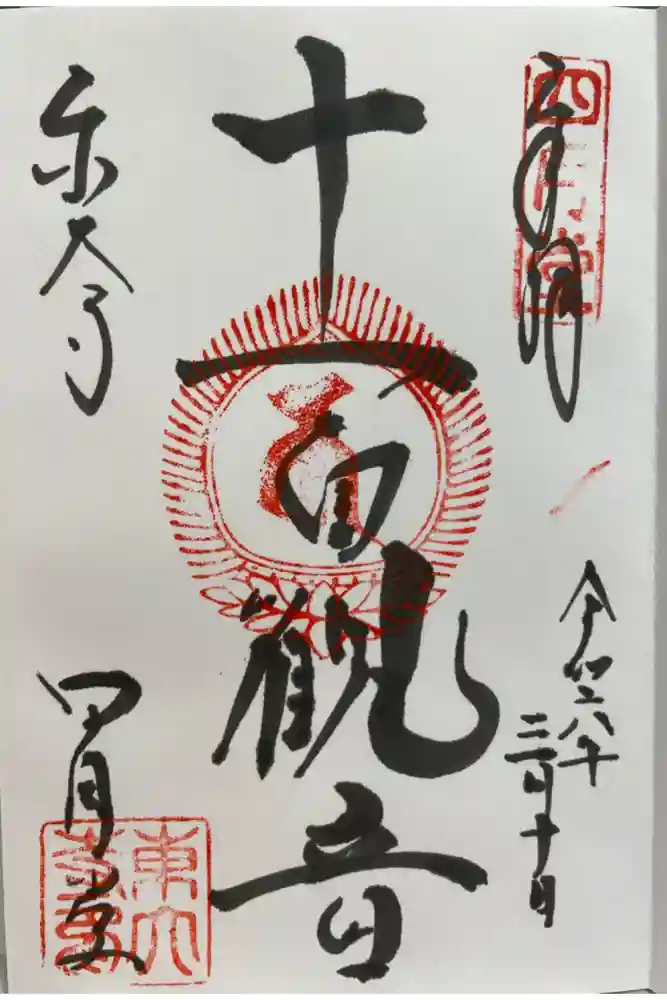 四月堂
奉拝
令和六年
三月十日
十一面観音
東大寺
四月堂
東大